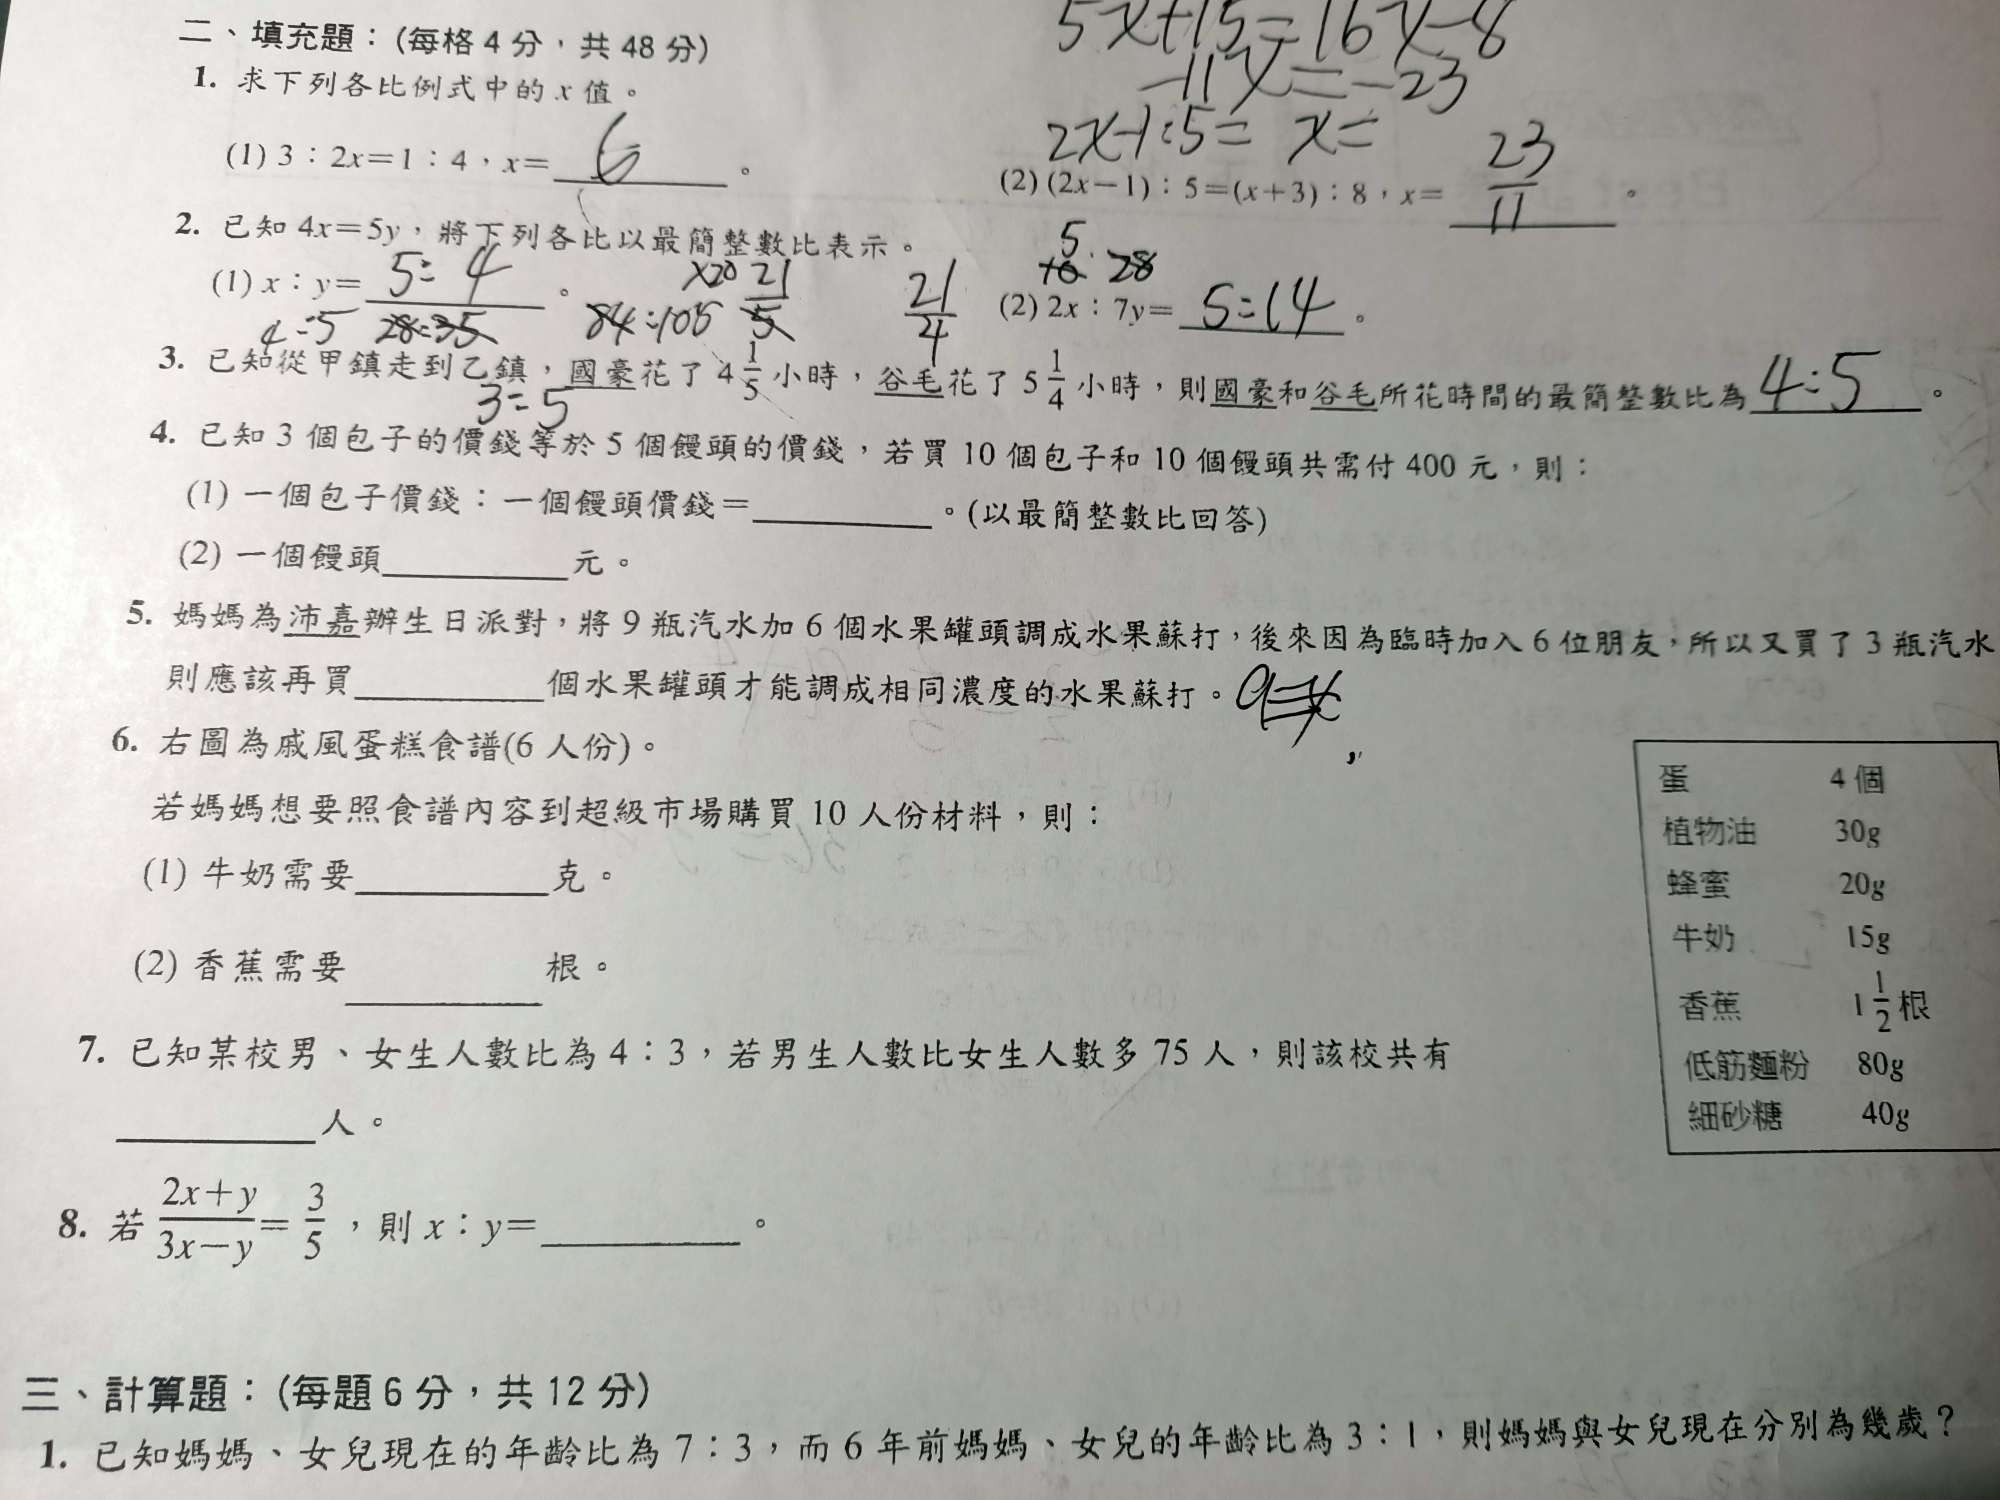 5x+15=16x-8
二、填充題：(每格4分，共48分)
-11x=-23
1. 求下列各比例式中的 x 值。
2x-1:5= x=
(1) 3：2x=1：4，x= 6 。
(2) (2x-1)：5=(x+3)：8，x= 23/11 。
2. 已知 4x=5y，將下列各比以最簡整數比表示。
5
10 28
(1) x：y= 5:4 。
(2) 2x：7y= 5:14 。
4:5 28:35 84:105 x20 21/5 21/4
3. 已知從甲鎮走到乙鎮，國豪花了 4 1/5 小時，谷毛花了 5 1/4 小時，則國豪和谷毛所花時間的最簡整數比為 4:5 。
3:5
4. 已知 3 個包子的價錢等於 5 個饅頭的價錢，若買 10 個包子和 10 個饅頭共需付 400 元，則：
(1) 一個包子價錢：一個饅頭價錢=＿＿＿＿。(以最簡整數比回答)
(2) 一個饅頭＿＿＿＿元。
5. 媽媽為沛嘉辦生日派對，將 9 瓶汽水加 6 個水果罐頭調成水果蘇打，後來因為臨時加入 6 位朋友，所以又買了 3 瓶汽水
則應該再買＿＿＿＿個水果罐頭才能調成相同濃度的水果蘇打。
6. 右圖為戚風蛋糕食譜(6 人份)。
若媽媽想要照食譜內容到超級市場購買 10 人份材料，則：
(1) 牛奶需要＿＿＿＿克。
(2) 香蕉需要＿＿＿＿根。
蛋 4個
植物油 30g
蜂蜜 20g
牛奶 15g
香蕉 1 1/2 根
低筋麵粉 80g
細砂糖 40g
7. 已知某校男、女生人數比為 4：3，若男生人數比女生人數多 75 人，則該校共有
＿＿＿＿人。
8. 若 (2x+y)/(3x-y) = 3/5，則 x：y=＿＿＿＿。
三、計算題：(每題6分，共12分)
1. 已知媽媽、女兒現在的年齡比為 7：3，而 6 年前媽媽、女兒的年齡比為 3：1，則媽媽與女兒現在分別為幾歲？